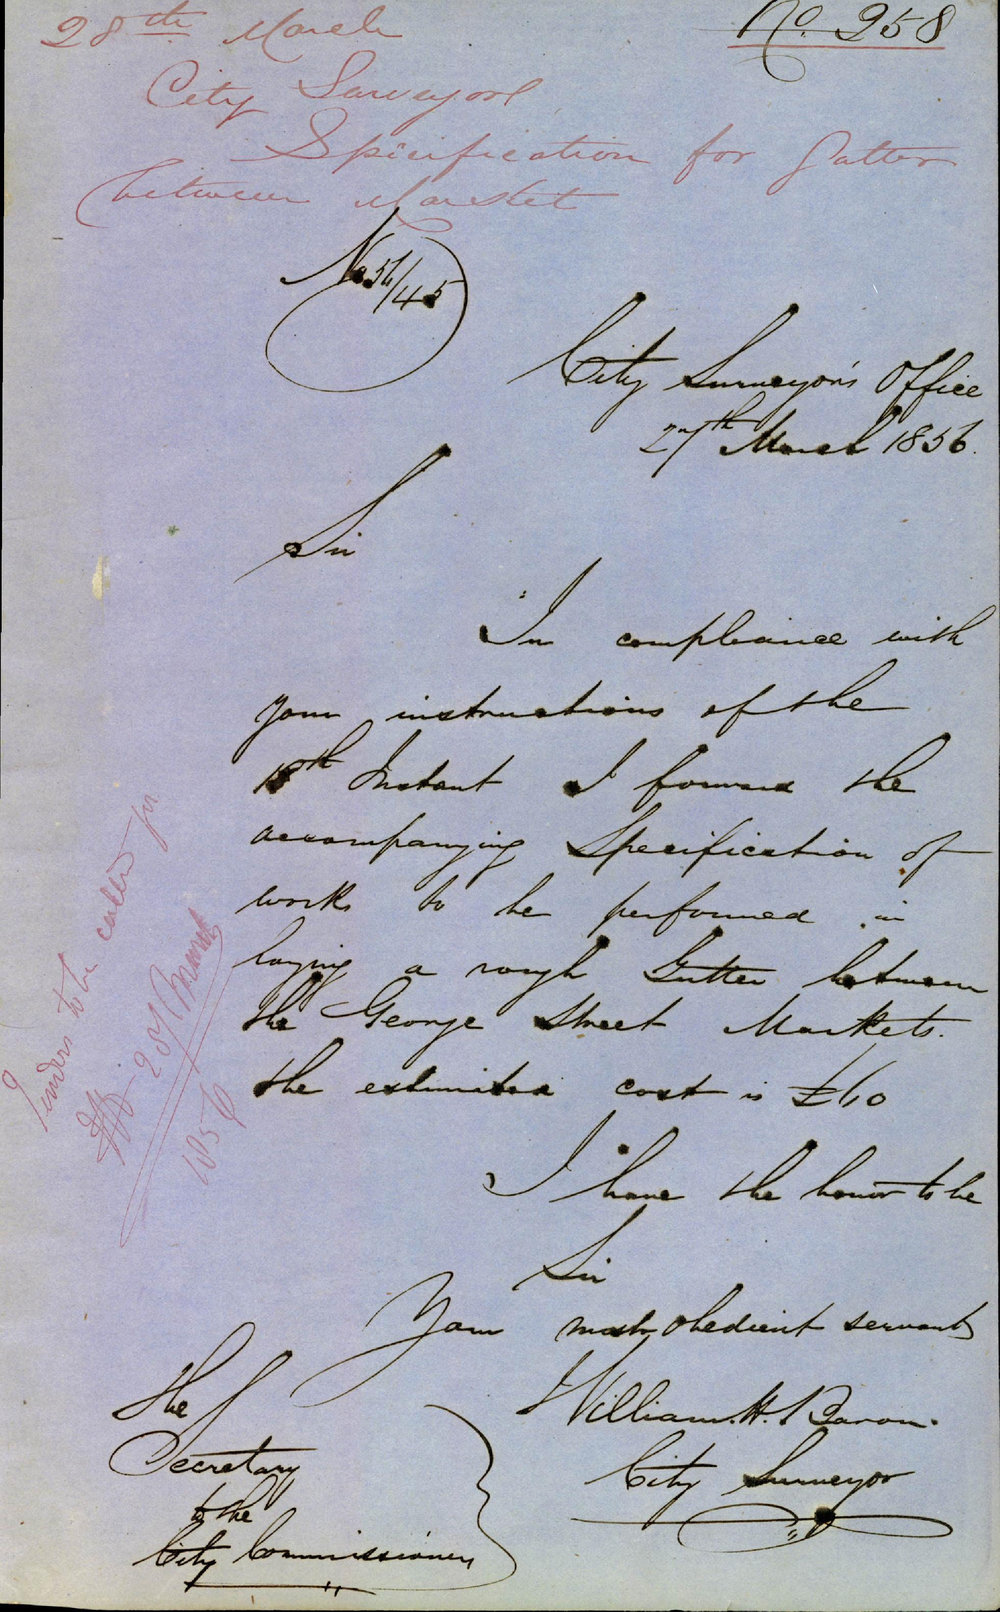 28th March
No. 258
City Surveyor
Specification for Gutter
between Market
No 56/45
City Surveyor's Office
27th March 1856.
Sir
In compliance with
your instructions of the
18th Instant I forward the
accompanying Specification of
works to be performed in
laying a rough Gutter between
the George Street Markets.
the estimated cost is £60
I have the honor to be
Sir
Your most obedient servant
William. H. Baron.
City Surveyor
The
Secretary
to the
City Commissioners
Tenders to be called for
28 / March
1856